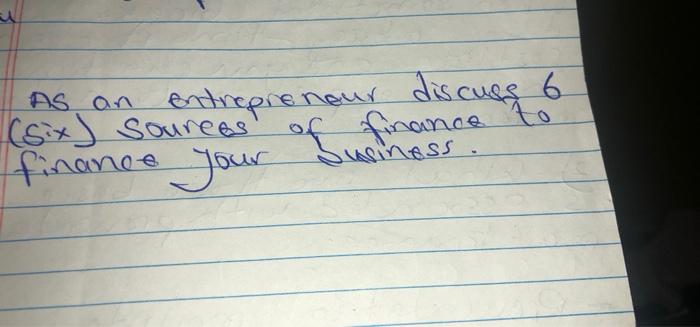 As an entrepreneur discuss 6
(six) sources of finance to
finance your business.